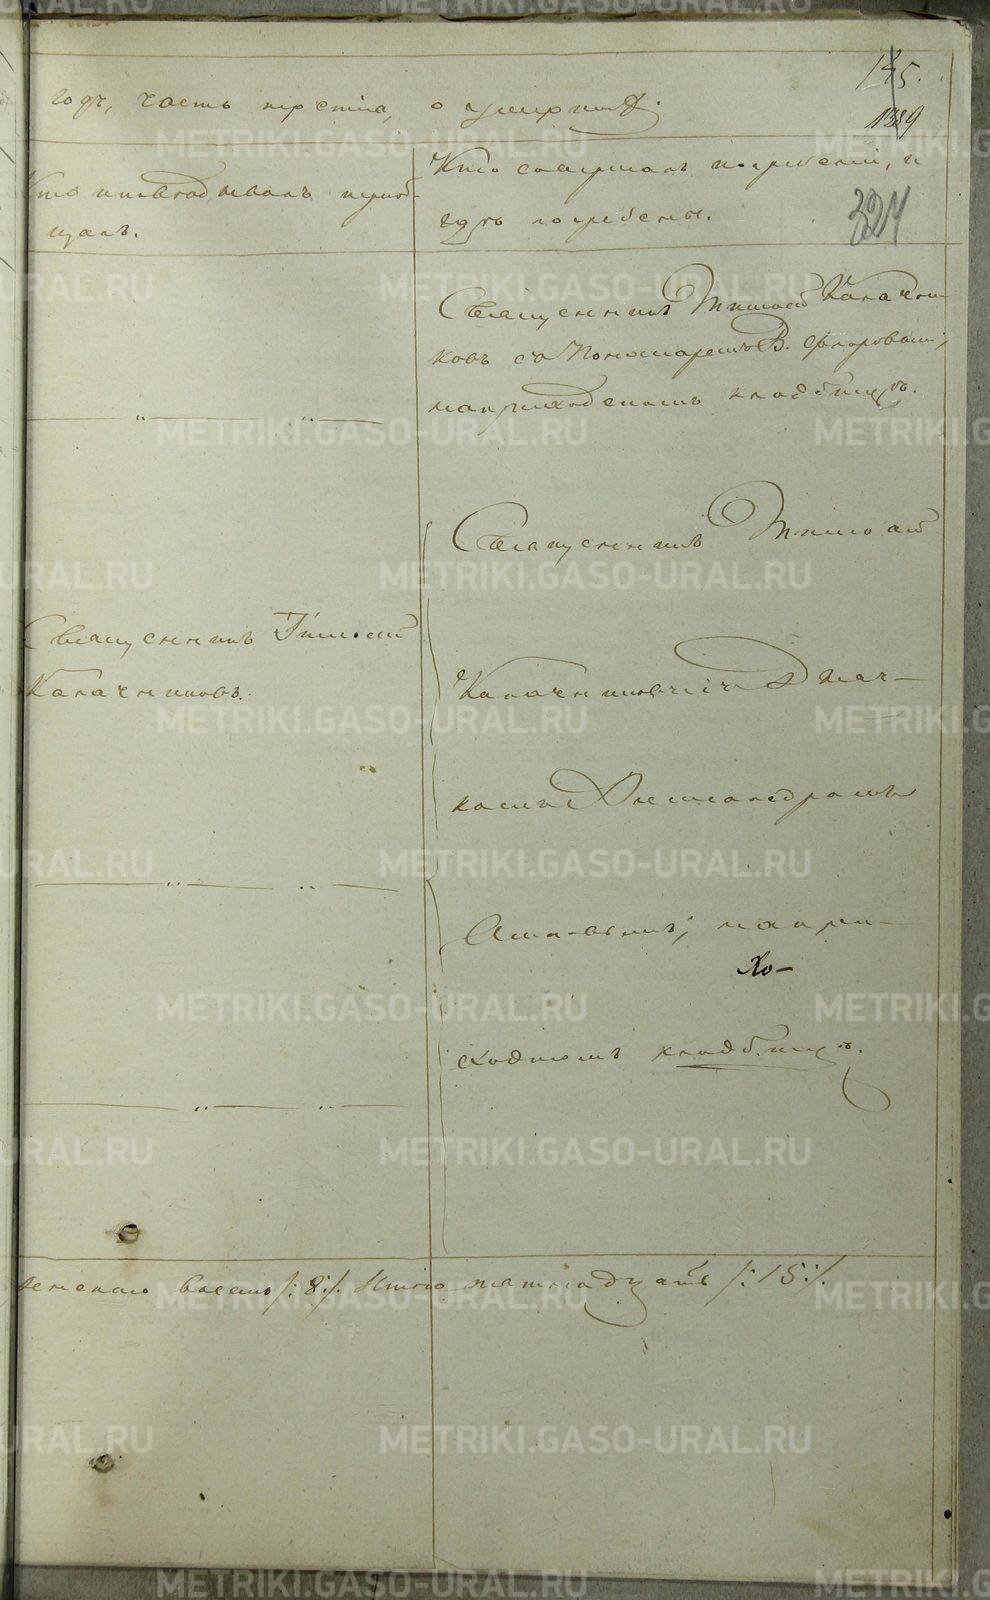 145.
годъ, часть третія, о умершихъ.
1389
Кто исповѣдывалъ и пріоб-
щалъ.
Кто совершалъ погребеніе, и
гдѣ погребены.
324
Священникъ Тимоѳей Калачни-
ковъ съ Пономаремъ В. Флоровымъ;
на приходскомъ кладбищѣ.
Священникъ Тимоѳей
Калачниковъ.
Священникъ Тимоѳей
Калачниковъ съ Дьяч-
комъ Александромъ
на при-
хо-
скомъ кладбищѣ.
женскаго восемь /:8:/. Итого пятнадцать /:15:/.
METRIKI.GASO-URAL.RU